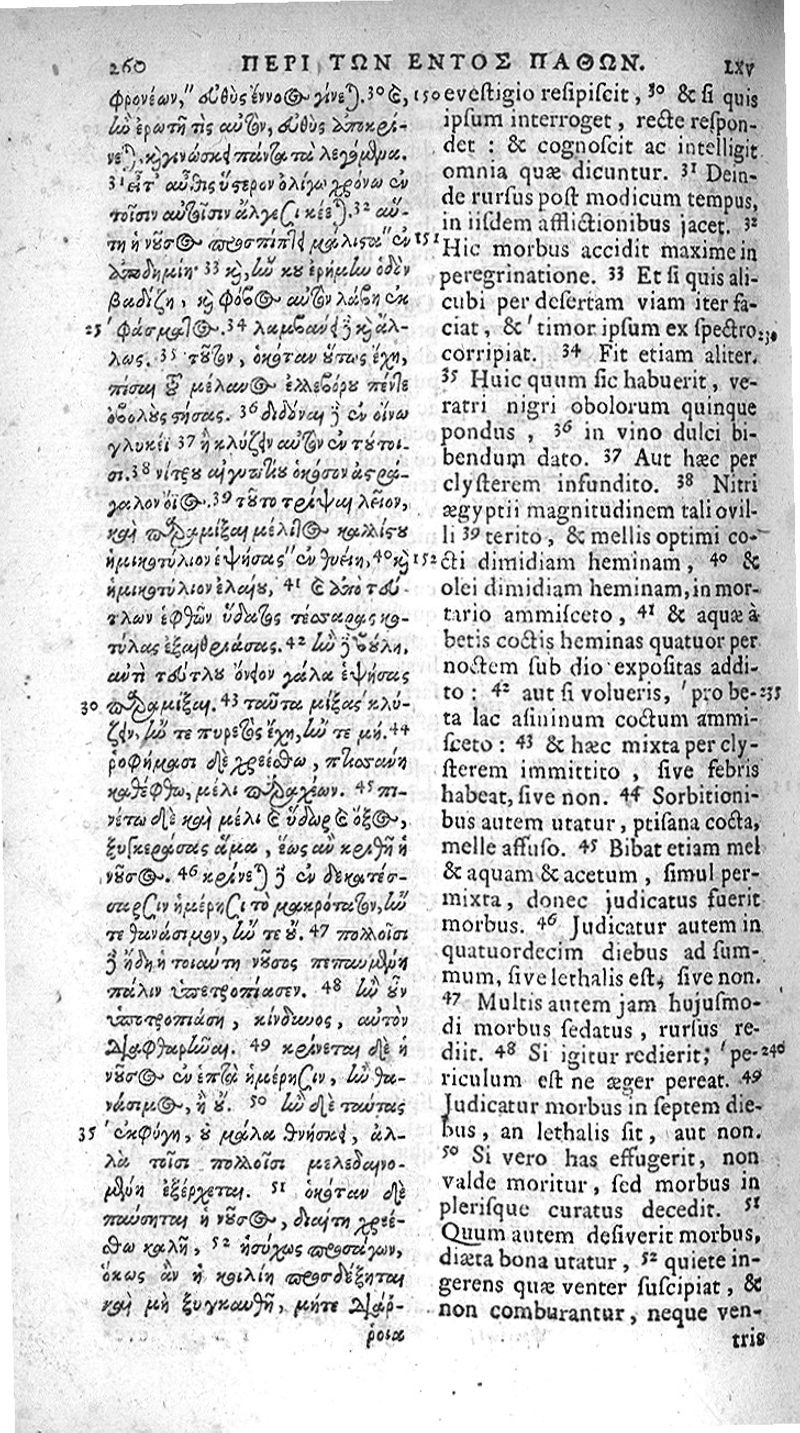 260 ΠΕΡΙ ΤΩΝ ΕΝΤΟΣ ΠΑΘΩΝ. LXV
φρονέων," εὐθὺς ἔννοος γίνεται. 30 καὶ,
ἢν ἐρωτῇ τὶς αὐτὸν, εὐθὺς ἀποκρί-
νεται, καὶ γινώσκει πάντα τὰ λεγόμενα.
31 εἶτ' αὖθις ὕστερον ὀλίγῳ χρόνῳ ἐν
τοῖσιν αὐτοῖσιν ἄλγεσι κέεται. 32 αὕ-
τη ἡ νοῦσος προσπίπτει μάλιστα" ἐν
ἀποδημίῃ· 33 καὶ, ἢν κου ἐρήμην ὁδὸν
βαδίζῃ, καὶ φόβος αὐτὸν λάβῃ ἐκ
25 ' φάσματος. 34 λαμβάνει δὲ καὶ ἄλ-
λως. 35 τοῦτον, ὁκόταν οὕτως ἔχῃ,
πῖσαι τοῦ μέλανος ἐλλεβόρου πέντε
ὀβολοὺς στήσας. 36 διδόναι δὲ ἐν οἴνῳ
γλυκεῖ 37 ἢ κλύζειν αὐτὸν ἐν τούτοι-
σι. 38 νίτρου αἰγυπτίου ὁκόσον ἀστρά-
γαλον ὄϊος. 39 τοῦτο τρίψαι λεῖον,
καὶ παραμίξαι μέλιτος καλλίστου
ἡμικοτύλιον ἑψήσας" ἐν θυείῃ, 40 καὶ
ἡμικοτύλιον ἐλαίου, 41 καὶ ἀπὸ τεύ-
τλων ἑφθῶν ὕδατος τέσσαρας κο-
τύλας ἐξαιθριάσας. 42 ἢν δὲ βούλῃ,
αὐτὶ τεύτλου ὄνειον γάλα ἑψήσας
30 παραμίξαι. 43 ταῦτα μίξας κλύ-
ζειν, ἤν τε πυρετὸς ἔχῃ, ἤν τε μή. 44
ῥοφήμασι δὲ χρεέσθω, πτισάνῃ
καθέφθῳ, μέλι παραχέων. 45 πι-
νέτω δὲ καὶ μέλι καὶ ὕδωρ καὶ ὄξος,
ξυγκεράσας ἅμα, ἕως ἂν κριθῇ ἡ
νοῦσος. 46 κρίνεται δὲ ἐν δεκατέσ-
σαρσιν ἡμέρῃσι τὸ μακρότατον, ἤν
τε θανάσιμον, ἤν τε οὔ. 47 πολλοῖσι
δὲ ἤδη ἡ τοιαύτη νοῦσος πεπαυμένη
πάλιν ὑπετροπίασεν. 48 ἢν οὖν
ὑποτροπιάσῃ, κίνδυνος, αὐτὸν
διαφθαρῆναι. 49 κρίνεται δὲ ἡ
νοῦσος ἐν ἑπτὰ ἡμέρῃσιν, ἢν θα-
νάσιμος, ἢ οὔ. 50 ἢν δὲ ταύτας
35 ' ἐκφύγῃ, οὐ μάλα θνήσκει, ἀλ-
λὰ τοῖσι πολλοῖσι μελεδαινο-
μένη ἐξέρχεται. 51 ὁκόταν δὲ
παύσηται ἡ νοῦσος, διαίτῃ χρεέ-
σθω καλῇ, 52 ἡσύχως προσάγων,
ὅκως ἂν ἡ κοιλίη προσδέξηται
καὶ μὴ ξυγκαυθῇ, μήτε διάρ-
ροια
150 evestigio resipiscit, 30 & si quis
ipsum interroget, recte respon-
det: & cognoscit ac intelligit
omnia quæ dicuntur. 31 Dein-
de rursus post modicum tempus,
in iisdem afflictionibus jacet. 32
151 Hic morbus accidit maxime in
peregrinatione. 33 Et si quis ali-
cubi per desertam viam iter fa-
ciat, & ' timor ipsum ex spectro 230
corripiat. 34 Fit etiam aliter.
35 Huic quum sic habuerit, ve-
ratri nigri obolorum quinque
pondus, 36 in vino dulci bi-
bendum dato. 37 Aut hæc per
clysterem infundito. 38 Nitri
ægyptii magnitudinem tali ovil-
li 39 terito, & mellis optimi co-
152 cti dimidiam heminam, 40 &
olei dimidiam heminam, in mor-
tario ammisceto, 41 & aquæ à
betis coctis heminas quatuor per
noctem sub dio expositas addi-
to: 42 aut si volueris, ' pro be- 235
ta lac asininum coctum ammi-
sceto: 43 & hæc mixta per cly-
sterem immittito, sive febris
habeat, sive non. 44 Sorbitioni-
bus autem utatur, ptisana cocta,
melle affuso. 45 Bibat etiam mel
& aquam & acetum, simul per-
mixta, donec judicatus fuerit
morbus. 46 Judicatur autem in
quatuordecim diebus ad sum-
mum, sive lethalis est, sive non.
47 Multis autem jam hujusmo-
di morbus sedatus, rursus re-
diit. 48 Si igitur redierit; ' pe- 240
riculum est ne æger pereat. 49
Judicatur morbus in septem die-
bus, an lethalis sit, aut non.
50 Si vero has effugerit, non
valde moritur, sed morbus in
plerisque curatus decedit. 51
Quum autem desiverit morbus,
diæta bona utatur, 52 quiete in-
gerens quæ venter suscipiat, &
non comburantur, neque ven-
tris